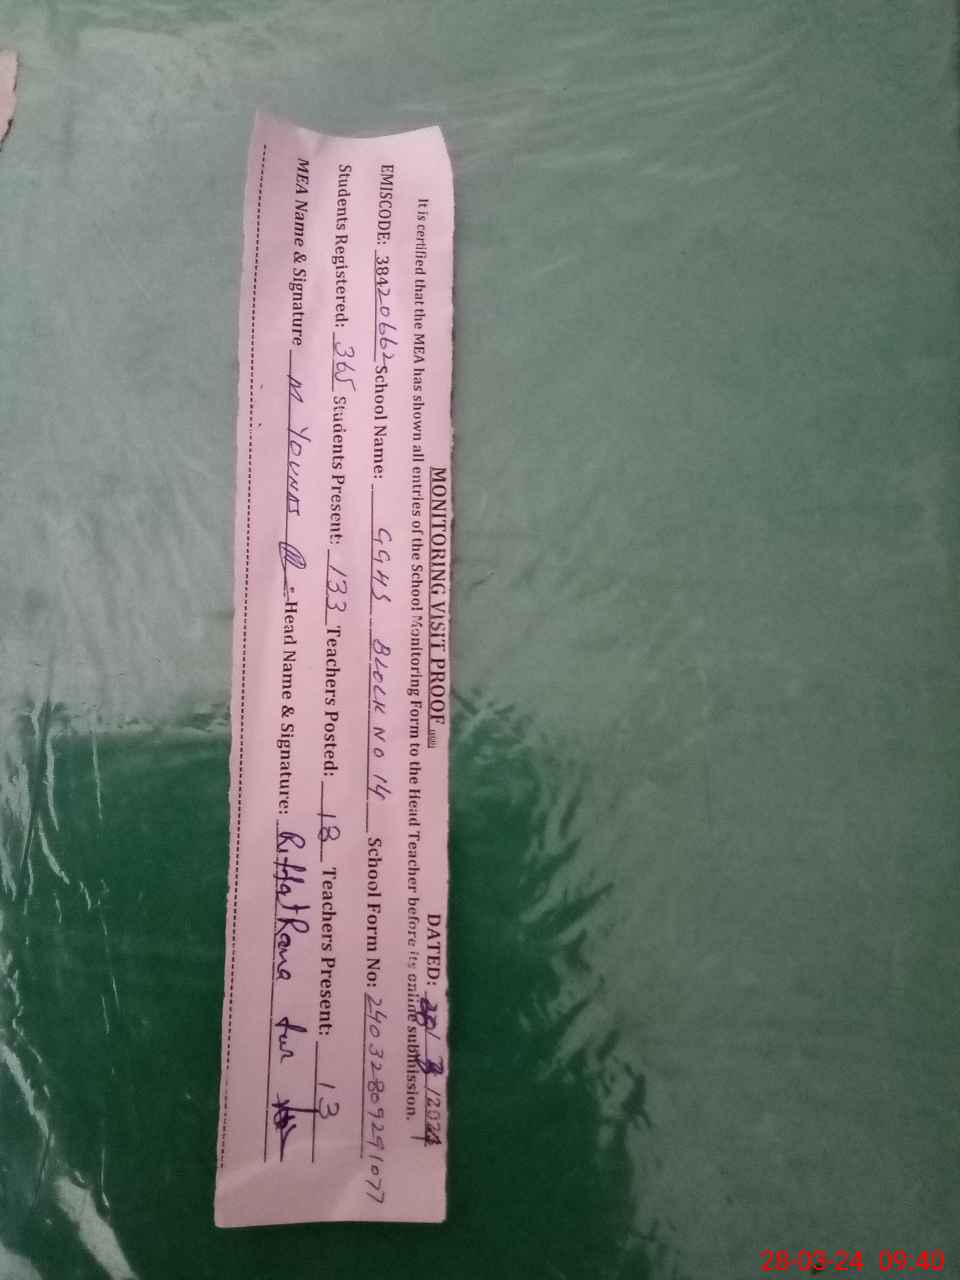 MONITORING VISIT PROOF
DATED: 28/3/2024
It is certified that the MEA has shown all entries of the School Monitoring Form to the Head Teacher before its online submission.
EMISCODE: 38420662 School Name: GGHS BLOCK NO 14 School Form No: 24032809291077
Students Registered: 365 Students Present: 133 Teachers Posted: 18 Teachers Present: 13
MEA Name & Signature M YOUNAS Head Name & Signature: Riffat Rana
28-03-24 09:40